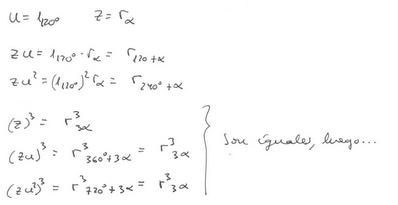 u = 1₁₂₀° z = r_α
zu = 1₁₂₀° · r_α = r₁₂₀₊α
zu² = (1₁₂₀°)² r_α = r₂₄₀°₊α
(z)³ = r³_3α
(zu)³ = r³_360°+3α = r³_3α
(zu²)³ = r³_720°+3α = r³_3α
Son iguales, luego...